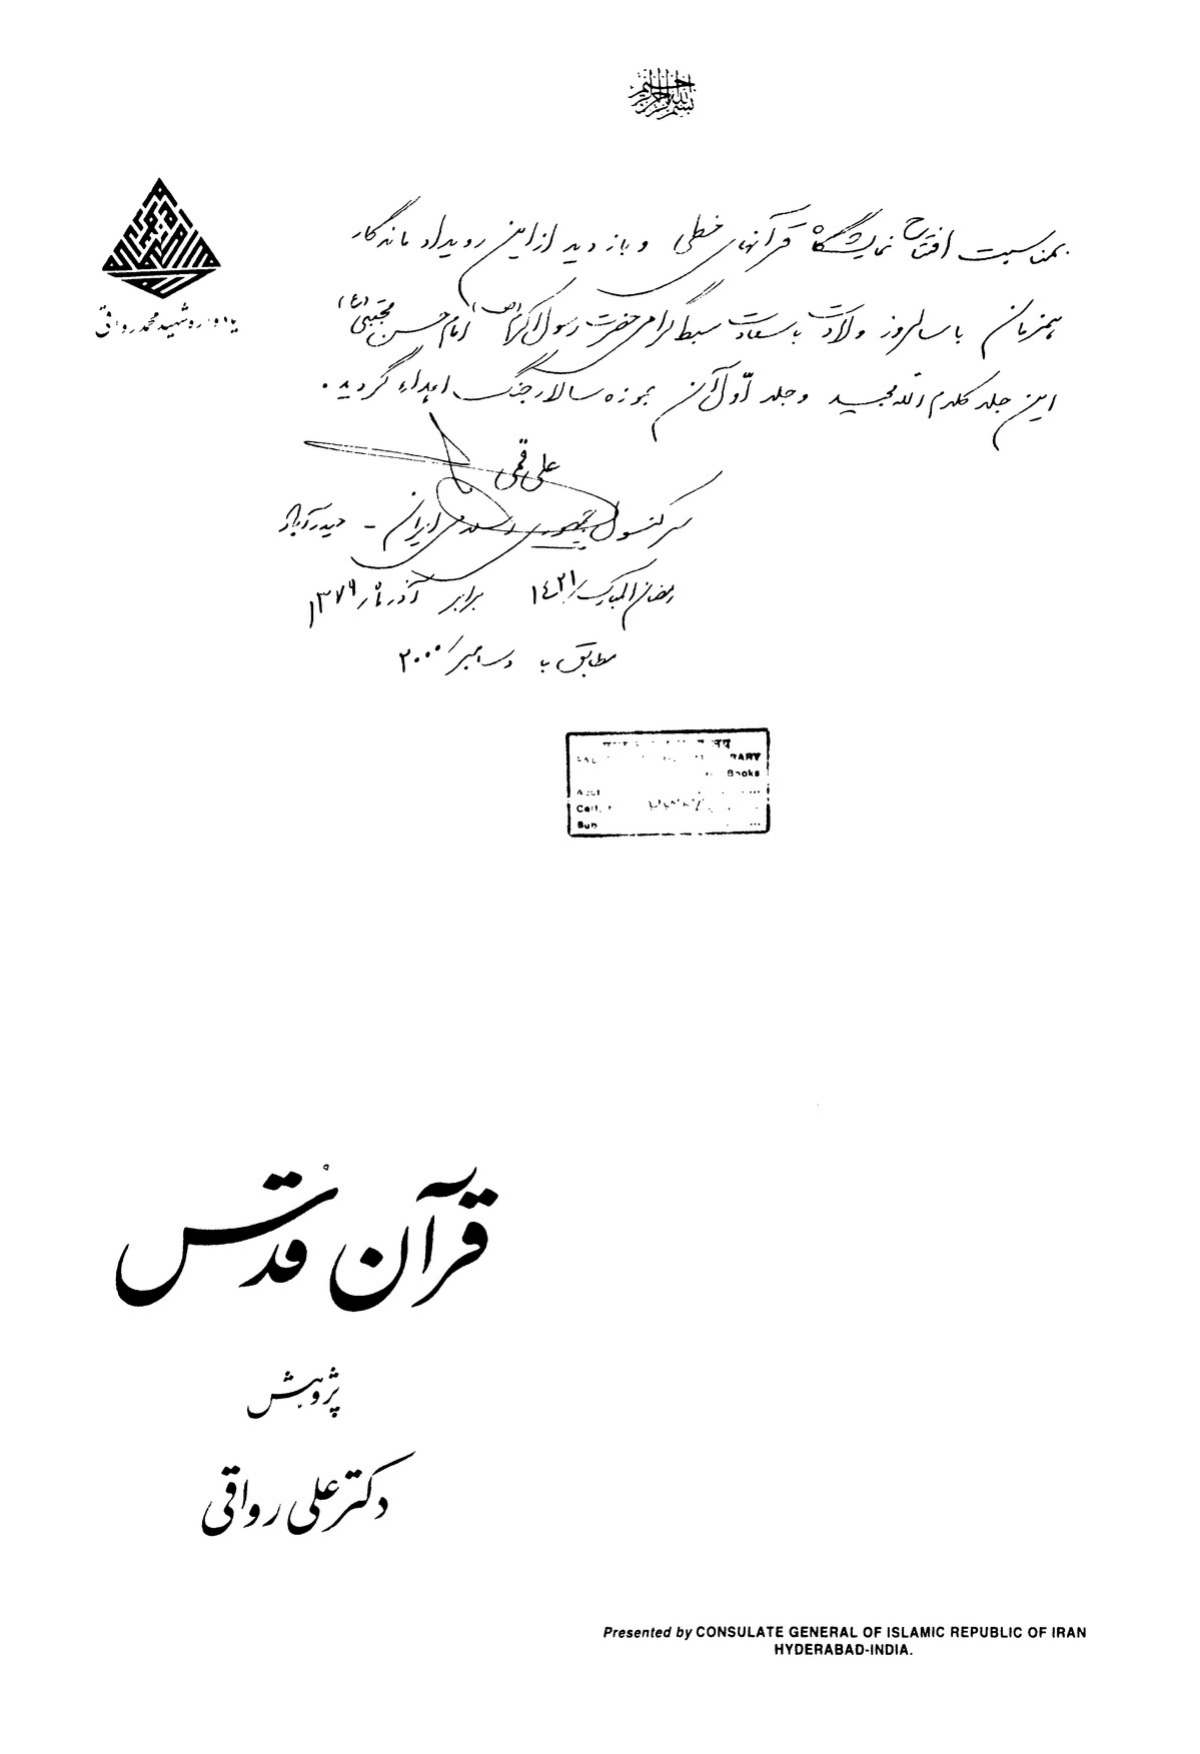 بسم الله الرحمن الرحیم
بمناسبت افتتاح نمایشگاه قرآنهای خطی و بازدید از این رویداد ماندگار
همزمان با سالروز ولادت با سعادت سبط گرامی حضرت رسول اکرم (ص) امام حسن مجتبی (ع)
این جلد کلام الله مجید و جلد اوّل آن بموزه سالار جنگ اهداء گردید.
علی قمی
سرکنسول جمهوری اسلامی ایران - حیدرآباد
رمضان المبارک/۱٤۲۱ برابر آذر ماه/۱۳۷۹
مطابق با دسامبر/۲۰۰۰
یادواره شهید محمد رواقی
RARY
Books
قرآن قُدس
پژوهش
دکتر علی رواقی
Presented by CONSULATE GENERAL OF ISLAMIC REPUBLIC OF IRAN
HYDERABAD-INDIA.